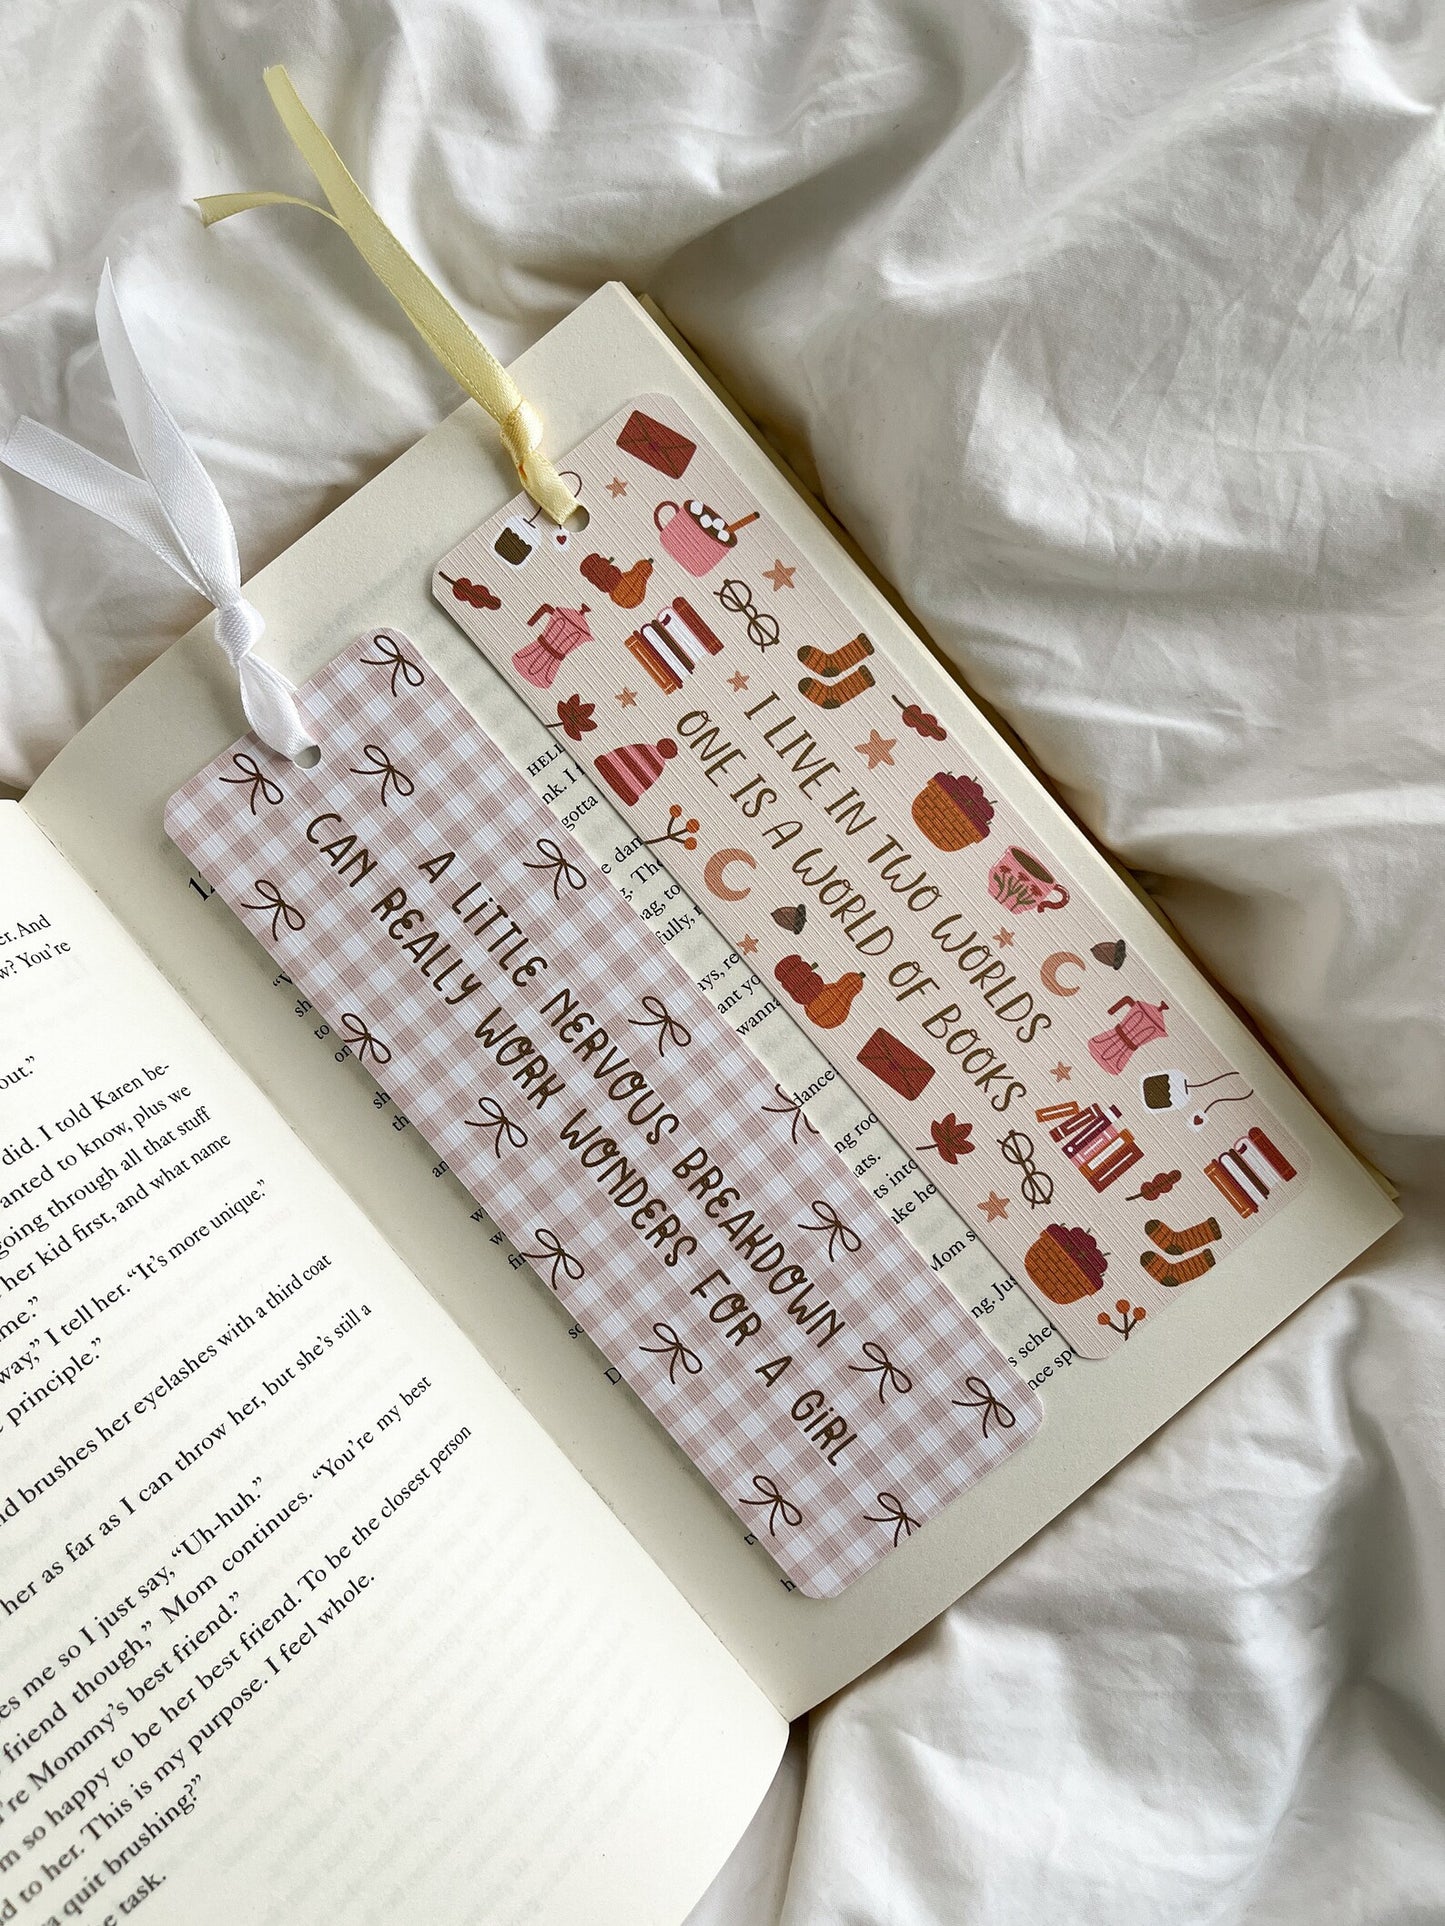 A LITTLE NERVOUS BREAKDOWN
CAN REALLY WORK WONDERS FOR A GIRL
I LIVE IN TWO WORLDS
ONE IS A WORLD OF BOOKS
er. And
w? You're
out.”
did. I told Karen be-
anted to know, plus we
going through all that stuff
her kid first, and what name
me.”
way,” I tell her. “It's more unique.”
principle.”
brushes her eyelashes with a third coat
her as far as I can throw her, but she's still a
es me so I just say, “Uh-huh.”
friend though,” Mom continues. “You're my best
're Mommy's best friend.”
m so happy to be her best friend. To be the closest person
to her. This is my purpose. I feel whole.
quit brushing?”
task.
HELL
nk. I
gotta
e dan
g. The
bag, to
fully,
ays, re
ant yo
wanna
dance
ng roo
ats.
ts into
ke he
Mom s
ng. Jus
s sche
nce sp